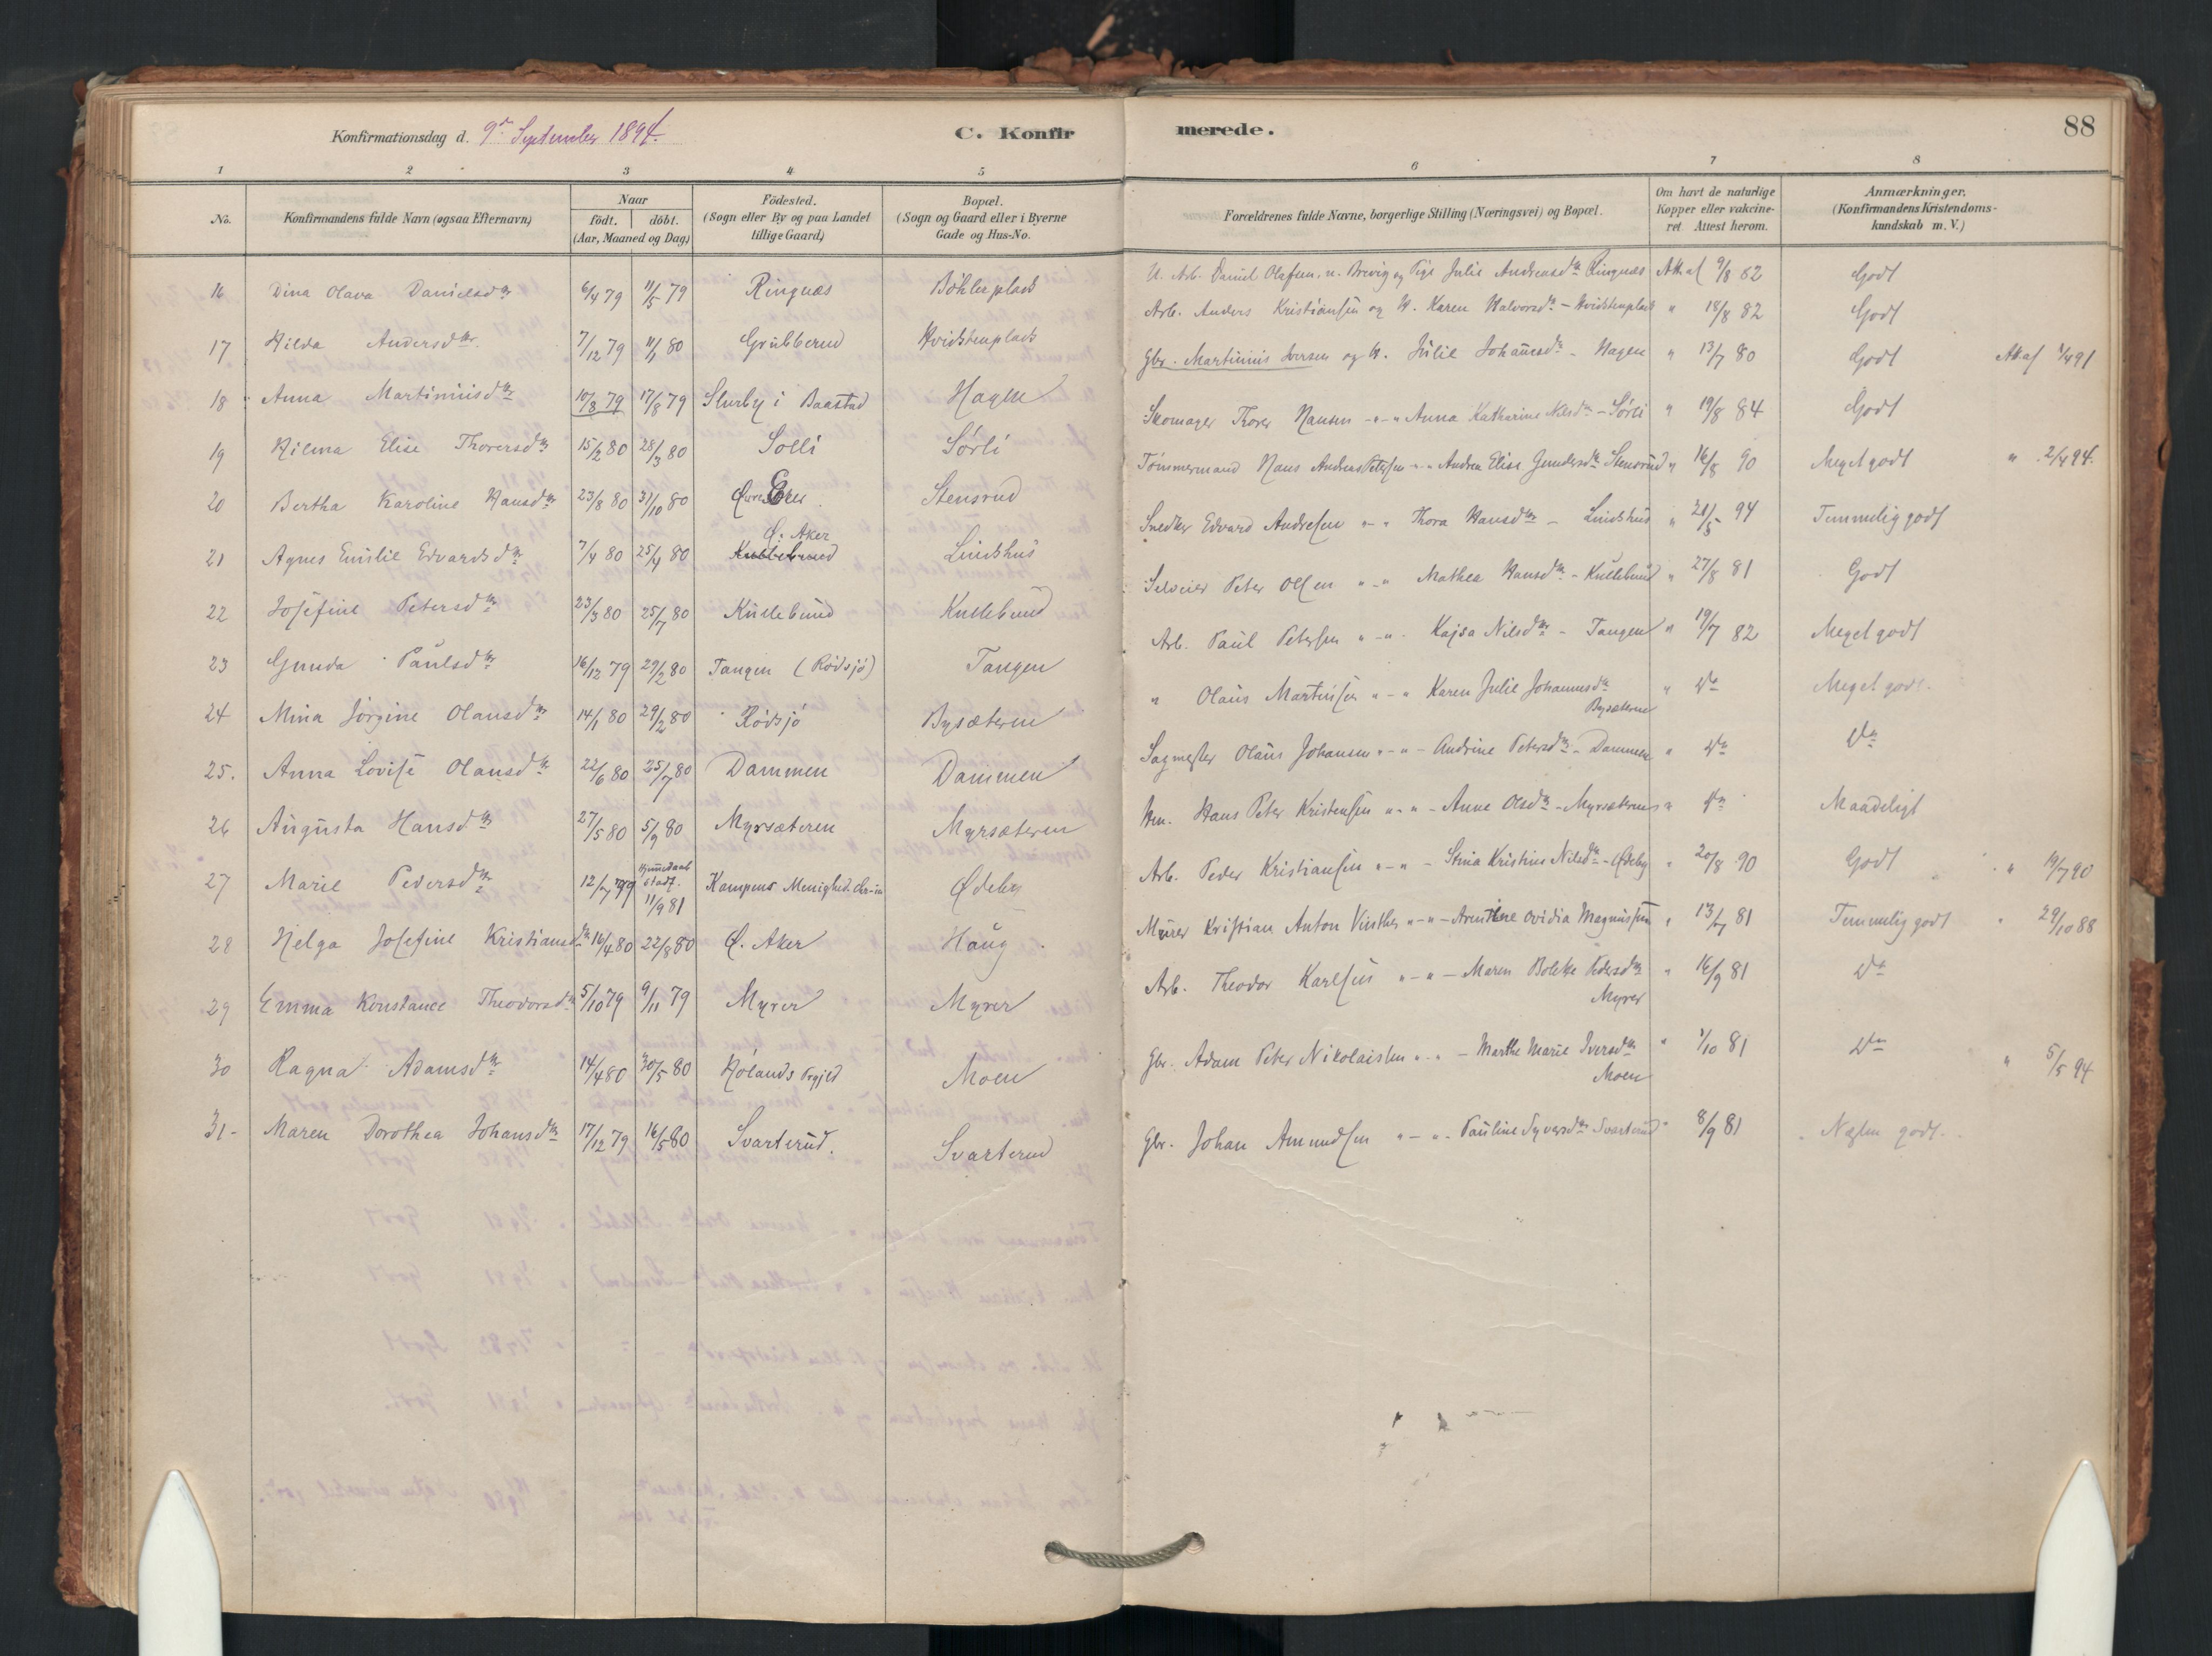 Konfirmationsdag d. 9de September 1894.
C. Konfirmerede.
88
1 2 3 4 5 6 7 8
No.
Konfirmandens fulde Navn (ogsaa Efternavn)
Naar
födt. döbt.
(Aar, Maaned og Dag)
Födested.
(Sogn eller By og paa Landet
tillige Gaard)
Bopæl.
(Sogn og Gaard eller i Byerne
Gade og Hus-No.
Forældrenes fulde Navne, borgerlige Stilling (Næringsvei) og Bopæl.
Om havt de naturlige
Kopper eller vakcine-
ret Attest herom.
Anmærkninger.
(Konfirmandens Kristendoms-
kundskab m. V.)
16 Dina Olava Danielsdtr 6/4 79 11/5 79 Ringnæs Böhlerplads U. Arb. Daniel Olafsen, n. Brevig og Pige Julie Andreasdtr Ringnæs Att. af 9/8 82 Godt
17 Hilda Andersdtr 7/12 79 11/1 80 Grübberud Hvidstenplads Arb. Anders Kristiansen og H. Karen Halvorsdr - Hvidstenplads " 18/8 82 Godt
18 Anna Martiniusdtr 10/8 79 17/8 79 Slurby i Baastad Hagen Gbr. Martinius Iversen og H. Julie Johannesdtr - Hagen " 13/7 80 Godt Att. af 1/4 91
19 Hilma Elise Thorersdtr 15/2 80 28/3 80 Solli Sörli Skomager Thorer Hansen " - " Anna Katharine Nilsdtr - Sörli " 19/8 84 Godt
20 Bertha Karoline Hansdtr 23/8 80 31/10 80 Stensrud Tömmermand Hans Anders Petersen " - " Andrea Elise Gundersdtr Stensrud " 16/8 90 Meget godt " 2/4 94.
21 Agnes Emilie Edvardsdtr 7/4 80 25/4 80 Ø. Aker
Kullebund Lindshus Snedker Edvard Andresen " - " Thora Hansdtr - Lindshus " 21/5 94 Temmelig godt
22 Josefine Petersdtr 23/3 80 25/7 80 Kullebund Kullebund Selveier Peter Olsen " - " Mathea Hansdtr - Kullebund " 27/8 81 Godt
23 Gunda Paulsdtr 16/12 79 29/2 80 Tangen (Rødsjö) Tangen Arb. Paul Petersen " - " Kajsa Nilsdtr - Tangen " 19/7 82 Meget godt
24 Mina Jörgine Olausdtr 14/1 80 29/2 80 Rödsjö Bysæteren " Olaus Martinsen " - " Karen Julie Johannesdtr
Bysæteren " Do Meget godt.
25. Anna Lovise Olausdtr 22/6 80 25/7 80 Dammen Dammen Sagmester Olaus Johansen " - " - Andrine Petersdtr - Dammen " Do Do
26 Augusta Hansdtr 27/5 80 5/9 80 Myrsæteren Myrsæteren Hm. Hans Peter Kristensen " - " - Anne Olsdtr - Myrsæteren " Do Maadeligt
27 Marie Pedersdtr 12/7 79 Hjemmedaab
stadf.
11/9 81 Kampens Menighed Chr-ia Ødeby Arb. Peder Kristiansen " - " - Stina Kristine Nilsdtr - Ødeby " 20/8 90 Godt " 19/7 90
28 Helga Josefine Kristiansdtr 16/4 80 22/8 80 Ø. Aker Haug Murer Kristian Anton Vinther " - " - Arentine Ovidia Magnussen " 13/7 81 Temmelig godt " 29/10 88
29 Emma Konstance Theodorsdtr 5/10 79 9/11 79 Myrer Myrer Arb. Theodor Karlsen " - " - Maren Bolette Pedersdtr
Myrer " 16/9 81 Do
30 Ragna Adamsdtr 14/4 80 30/5 80 Hölands Prgjld Moen Gbr. Adam Peter Nikolaisen " - " - Marthe Marie Iversdtr
Moen " 1/10 81 Do " 5/5 94
31- Maren Dorothea Johansdtr 17/12 79 16/5 80 Svarterud. Svarterud Gbr. Johan Amundsen " - " - Pauline Syversdtr Svarterud " 8/9 81 Næsten godt.